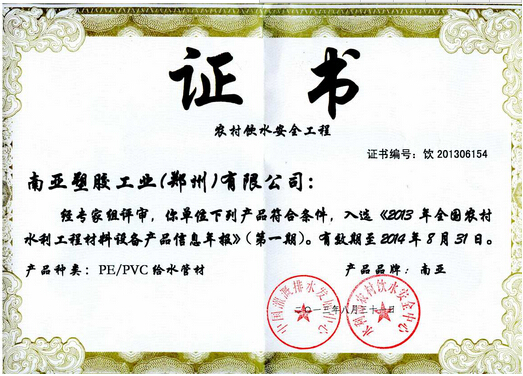 证书
农村饮水安全工程
证书编号：饮 201306154
南亚塑胶工业(郑州)有限公司：
经专家组评审，你单位下列产品符合条件，入选《2013 年全国农村
水利工程材料设备产品信息年报》(第一期)。有效期至2014年8月31日。
产品种类：PE/PVC 给水管材
产品品牌：南亚
中国灌溉排水发展中心
水利部农村饮水安全中心
二〇一三年八月三十一日